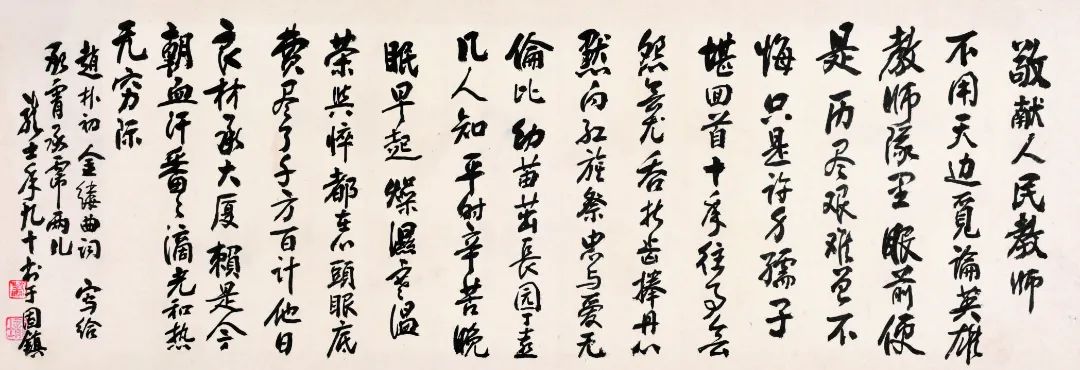 敬献人民教师
不用天边覓論英雄
教师隊里眼前便
是历尽艰难曾不
悔只是许身孺子
堪回首十年往事无
怨无尤吞折齿捧丹心
默向红旗祭忠与爱无
倫比幼苗茁長园丁喜
几人知平时辛苦晚
眠早起燥濕寒温
荣与悴都在心頭眼底
费尽了千方百计他日
良材承大厦賴是今
朝血汗番々滴光和热
无穷际
趙朴初金缕曲词写给
承霄承霈两儿
士年九十书于固鎮